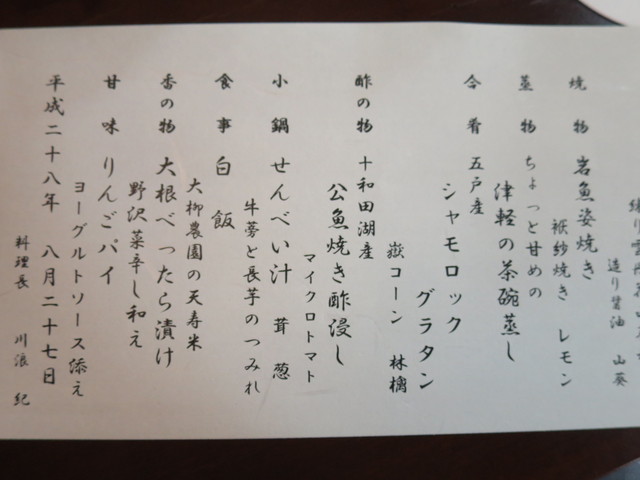 造り醤油 山葵
焼物 岩魚姿焼き
袱紗焼き レモン
蒸物 ちょっと甘めの
津軽の茶碗蒸し
合肴 五戸産
シャモロック
グラタン
嶽コーン 林檎
酢の物 十和田湖産
公魚焼き酢浸し
マイクロトマト
小鍋 せんべい汁 茸 葱
牛蒡と長芋のつみれ
食事 白飯
大柳農園の天寿米
香の物 大根べったら漬け
野沢菜辛し和え
甘味 りんごパイ
ヨーグルトソース添え
平成二十八年 八月二十七日
料理長 川浪 紀